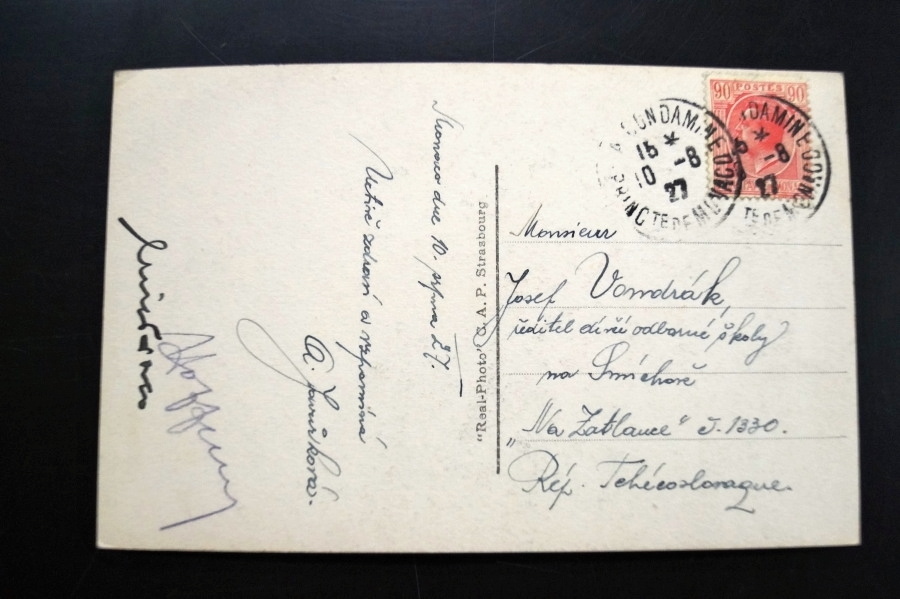 Monaco dne 10. srpna 27.
Uctivě zdraví a vzpomíná
A.
Hoffmann
"Real-Photo" C. A. P. Strasbourg
90 POSTES 90
CONDAMINE
15 * -8
10 27
PRINCTÉ DE MONACO
DAMINE
15 * -8
27
TÉ DE MONACO
Monsieur
Josef Vondrák,
ředitel dívčí odborné školy
na Smíchově
"Na Zatlance" č. 1330.
Rép. Tchécoslovaque.